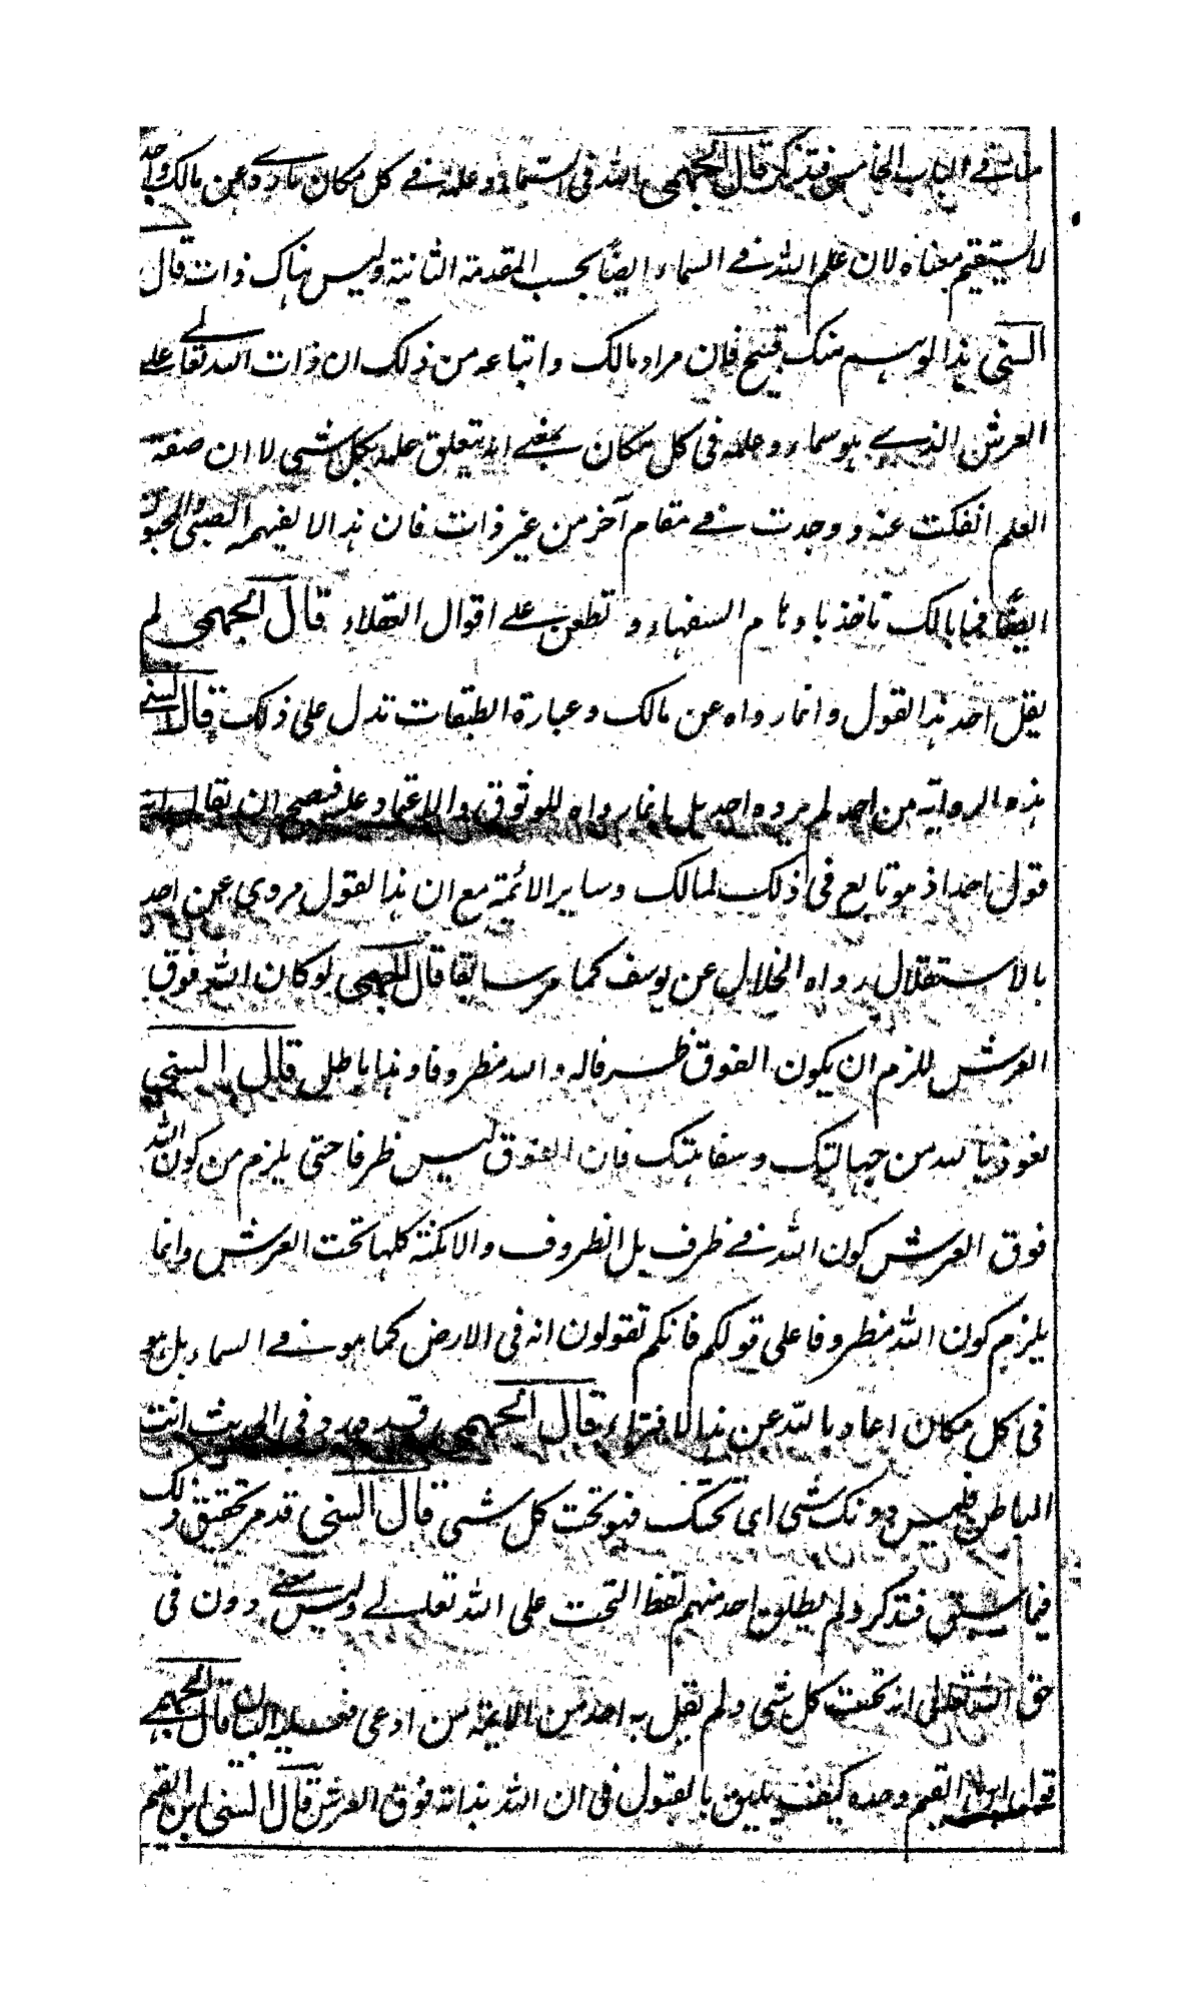 في الباب الخامس فتذكر قال الجهمي الله في السماء وعلمه في كل مكان مروي عن مالك واحمد
لا يستقيم معناه لان علم الله في السماء ايضًا بحسب المقدمة الثانية وليس هناك ذات قال
السني هذا الوهم منك قبيح فان مراد مالك واتباعه من ذلك ان ذات الله تعالى على
العرش الذي هو سماء وعلمه في كل مكان بمعنى انه يتعلق علمه بكل شي لا ان صفة
العلم انفكت عنه ووجدت في مقام آخر من غير ذات فان هذا لا يفهمه الصبي والمجنون
ايضًا فما بالك تاخذ باوهام السفهاء و تطعن على اقوال العقلاء قال الجهمي لم
يقل احمد هذا القول وانما رواه عن مالك وعبارة الطبقات تدل على ذلك قال السني
هذه الرواية من احمد لم يرده احمد بل انما رواه للوثوق والاعتماد عليه فيصح ان يقال انه
قول احمد اذ هو تابع في ذلك لمالك وساير الائمة مع ان هذا القول مروي عن احمد
بالاستقلال رواه الخلال عن يوسف كما مر سابقا قال الجهمي لو كان الله فوق
العرش للزم ان يكون الفوق ظرفا له والله مظروفا وهذا باطل قال السني
نعوذ بالله من جهالتك وسفاهتك فان الفوق ليس ظرفا حتى يلزم من كون الله
فوق العرش كون الله في ظرف بل الظروف والامكنة كلها تحت العرش وانما
يلزم كون الله مظروفا على قولكم فانكم تقولون انه في الارض كما هو في السماء بل هو
في كل مكان اعاذ بالله عن هذا الافتراء قال الجهمي قد ورد في الحديث انت
الباطن فليس دونك شي اي تحتك فهو تحت كل شي قال السني قد مر تحقيق ذلك
فيما سبق فتذكر ولم يطلق احد منهم لفظ التحت على الله تعالى وليس معنى دون في
حق الله تعالى انه تحت كل شي ولم يقل به احد من الائمة من ادعى فعليه البيان قال الجهمي
قول ابن القيم وحده كيف يليق بالقبول في ان الله بذاته فوق العرش قال السني ابن القيم